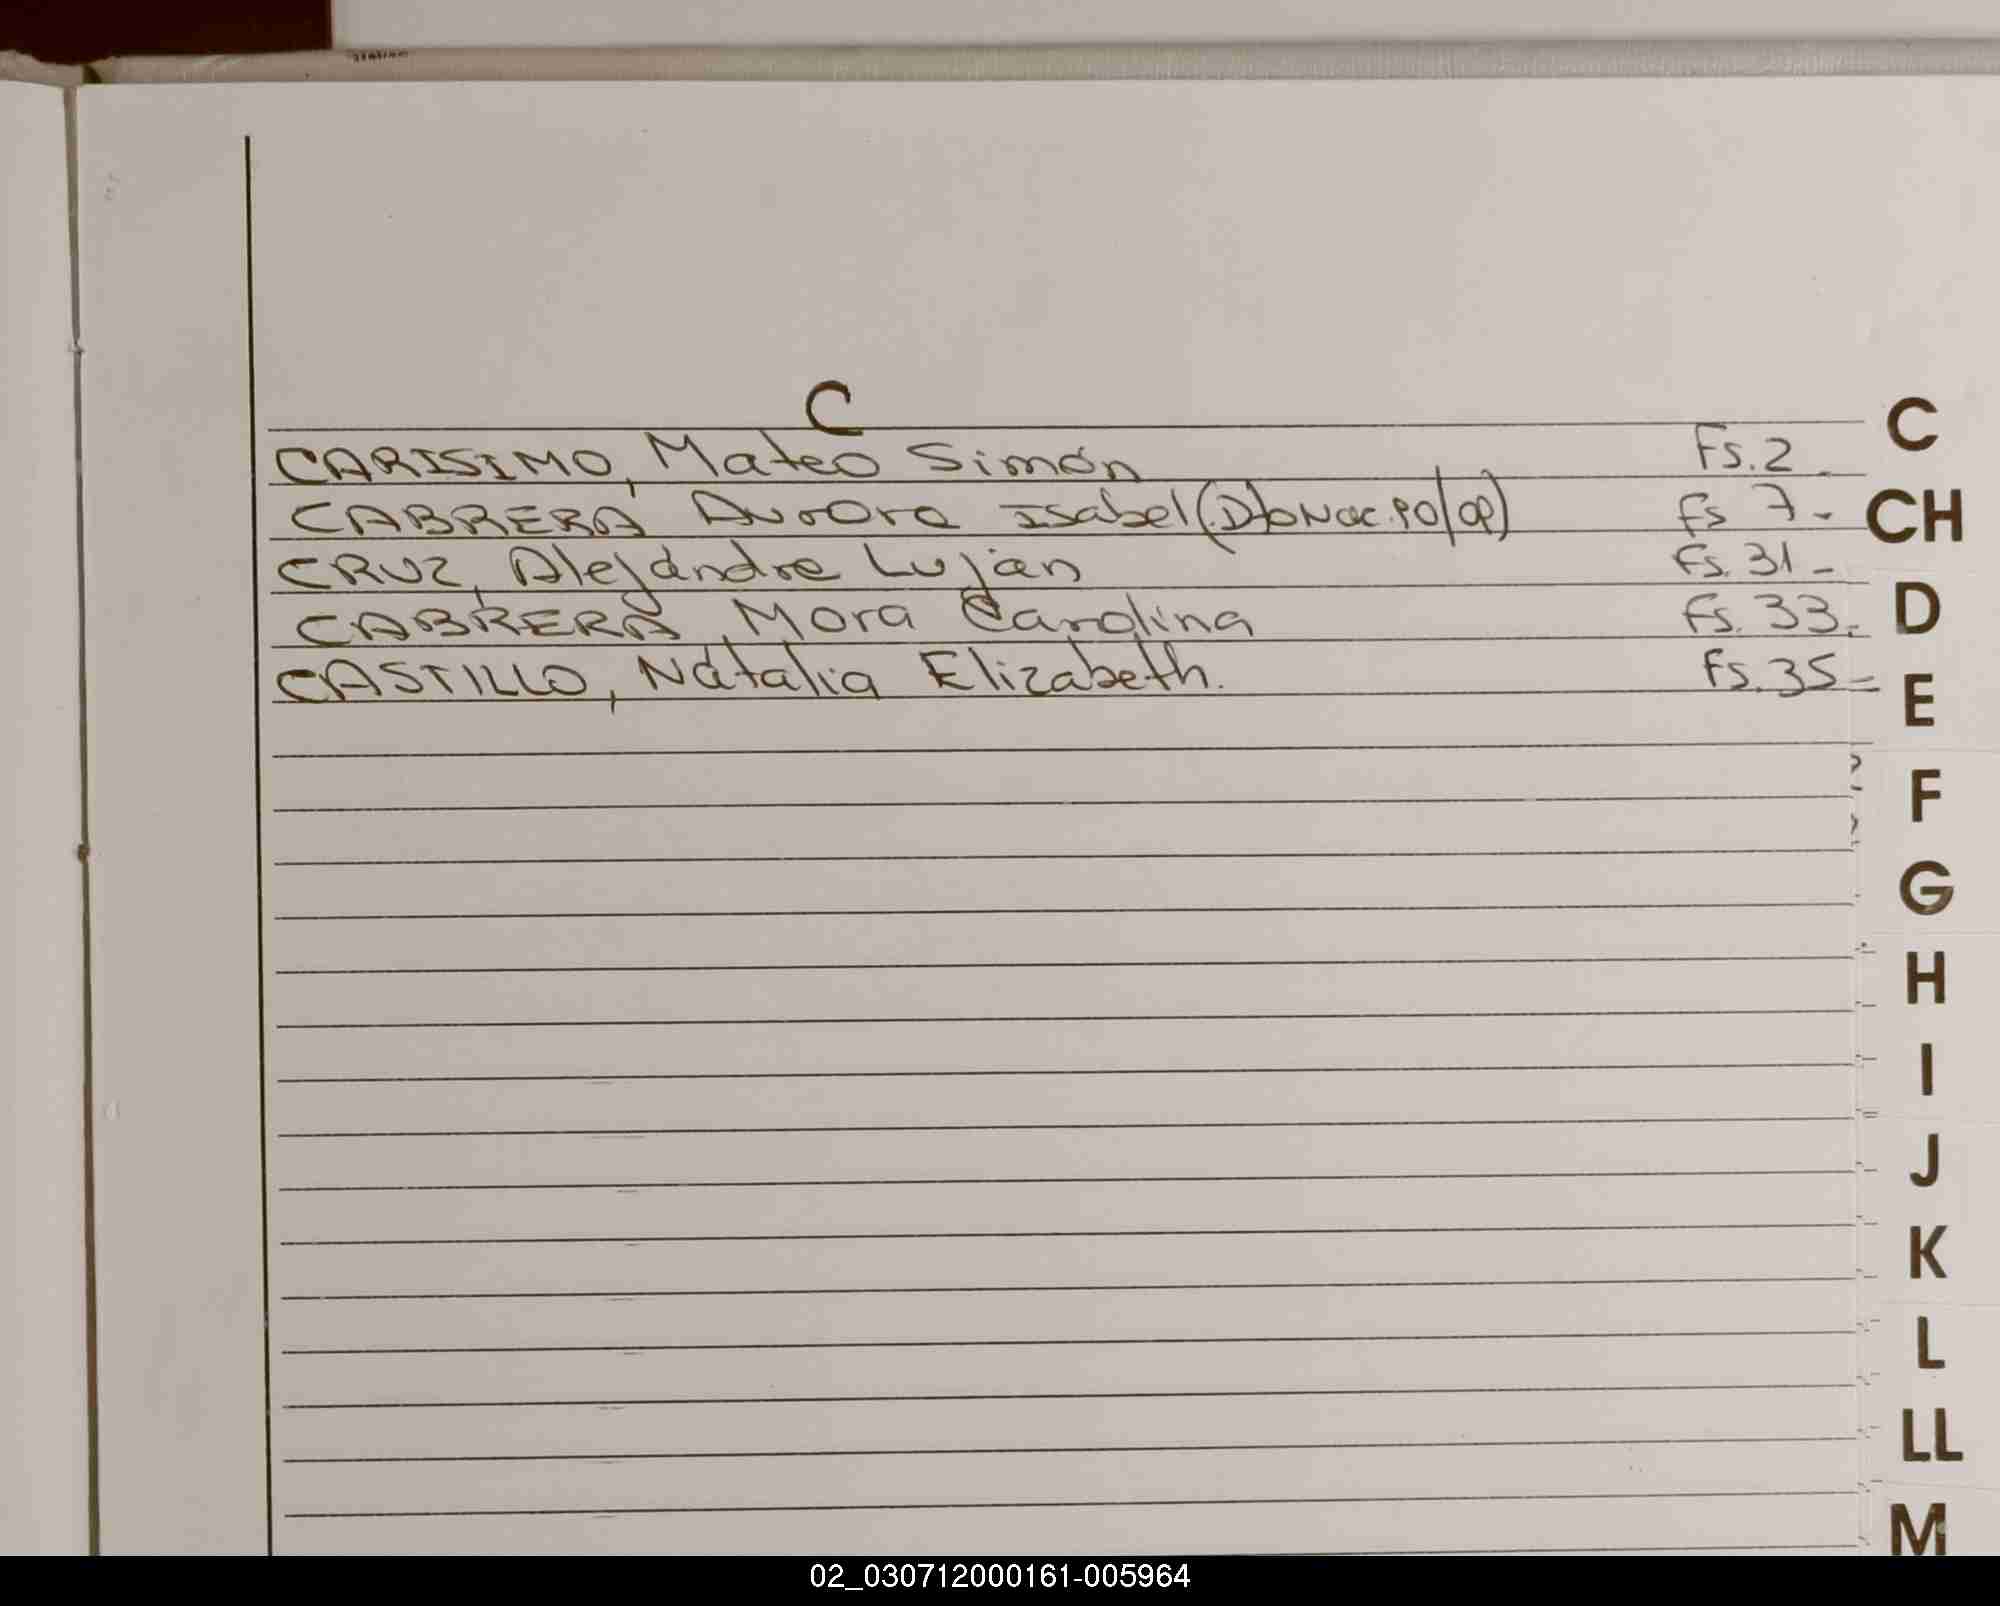 C
CARISIMO, Mateo Simón Fs.2_
CABRERA Aurora Isabel Fs 7-
CRUZ, Alejandre Luján Fs. 31-
CABRERA, Mora Carolina Fs. 33.
CASTILLO, Natalia Elizabeth. Fs. 35
C
CH
D
E
F
G
H
I
J
K
L
LL
M
02_030712000161-005964